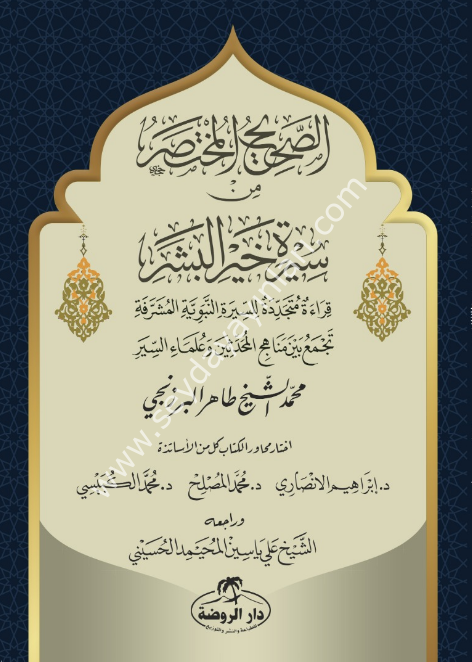 الصَّحِيحُ المُخْتَصَر
مِنْ
سِيرَةِ خَيْرِ البَشَر
ﷺ
قِرَاءَةٌ مُتَجَدِّدَةٌ لِلسِيرَةِ النَّبَوِيَّةِ المُشَرَّفَةِ
تَجْمَعُ بَيْنَ مَنَاهِجِ المُحَدِّثِينَ وَعُلَمَاءِ السِّيَرِ
محمّد الشيخ طاهر البرزنجي
اختار محاور الكتاب كل من الأساتذة
د. إبْرَاهِيم الأنْصَارِي د. مُحمَّد المُصْلِح د. مُحمَّد الكُبَيْسِي
وراجعه
الشَّيْخ عَلِي يَاسِين المُحَيْمِد الحُسَيْنِي
دار الروضة
للطباعة والنشر والتوزيع
www.seydarayinlari.com